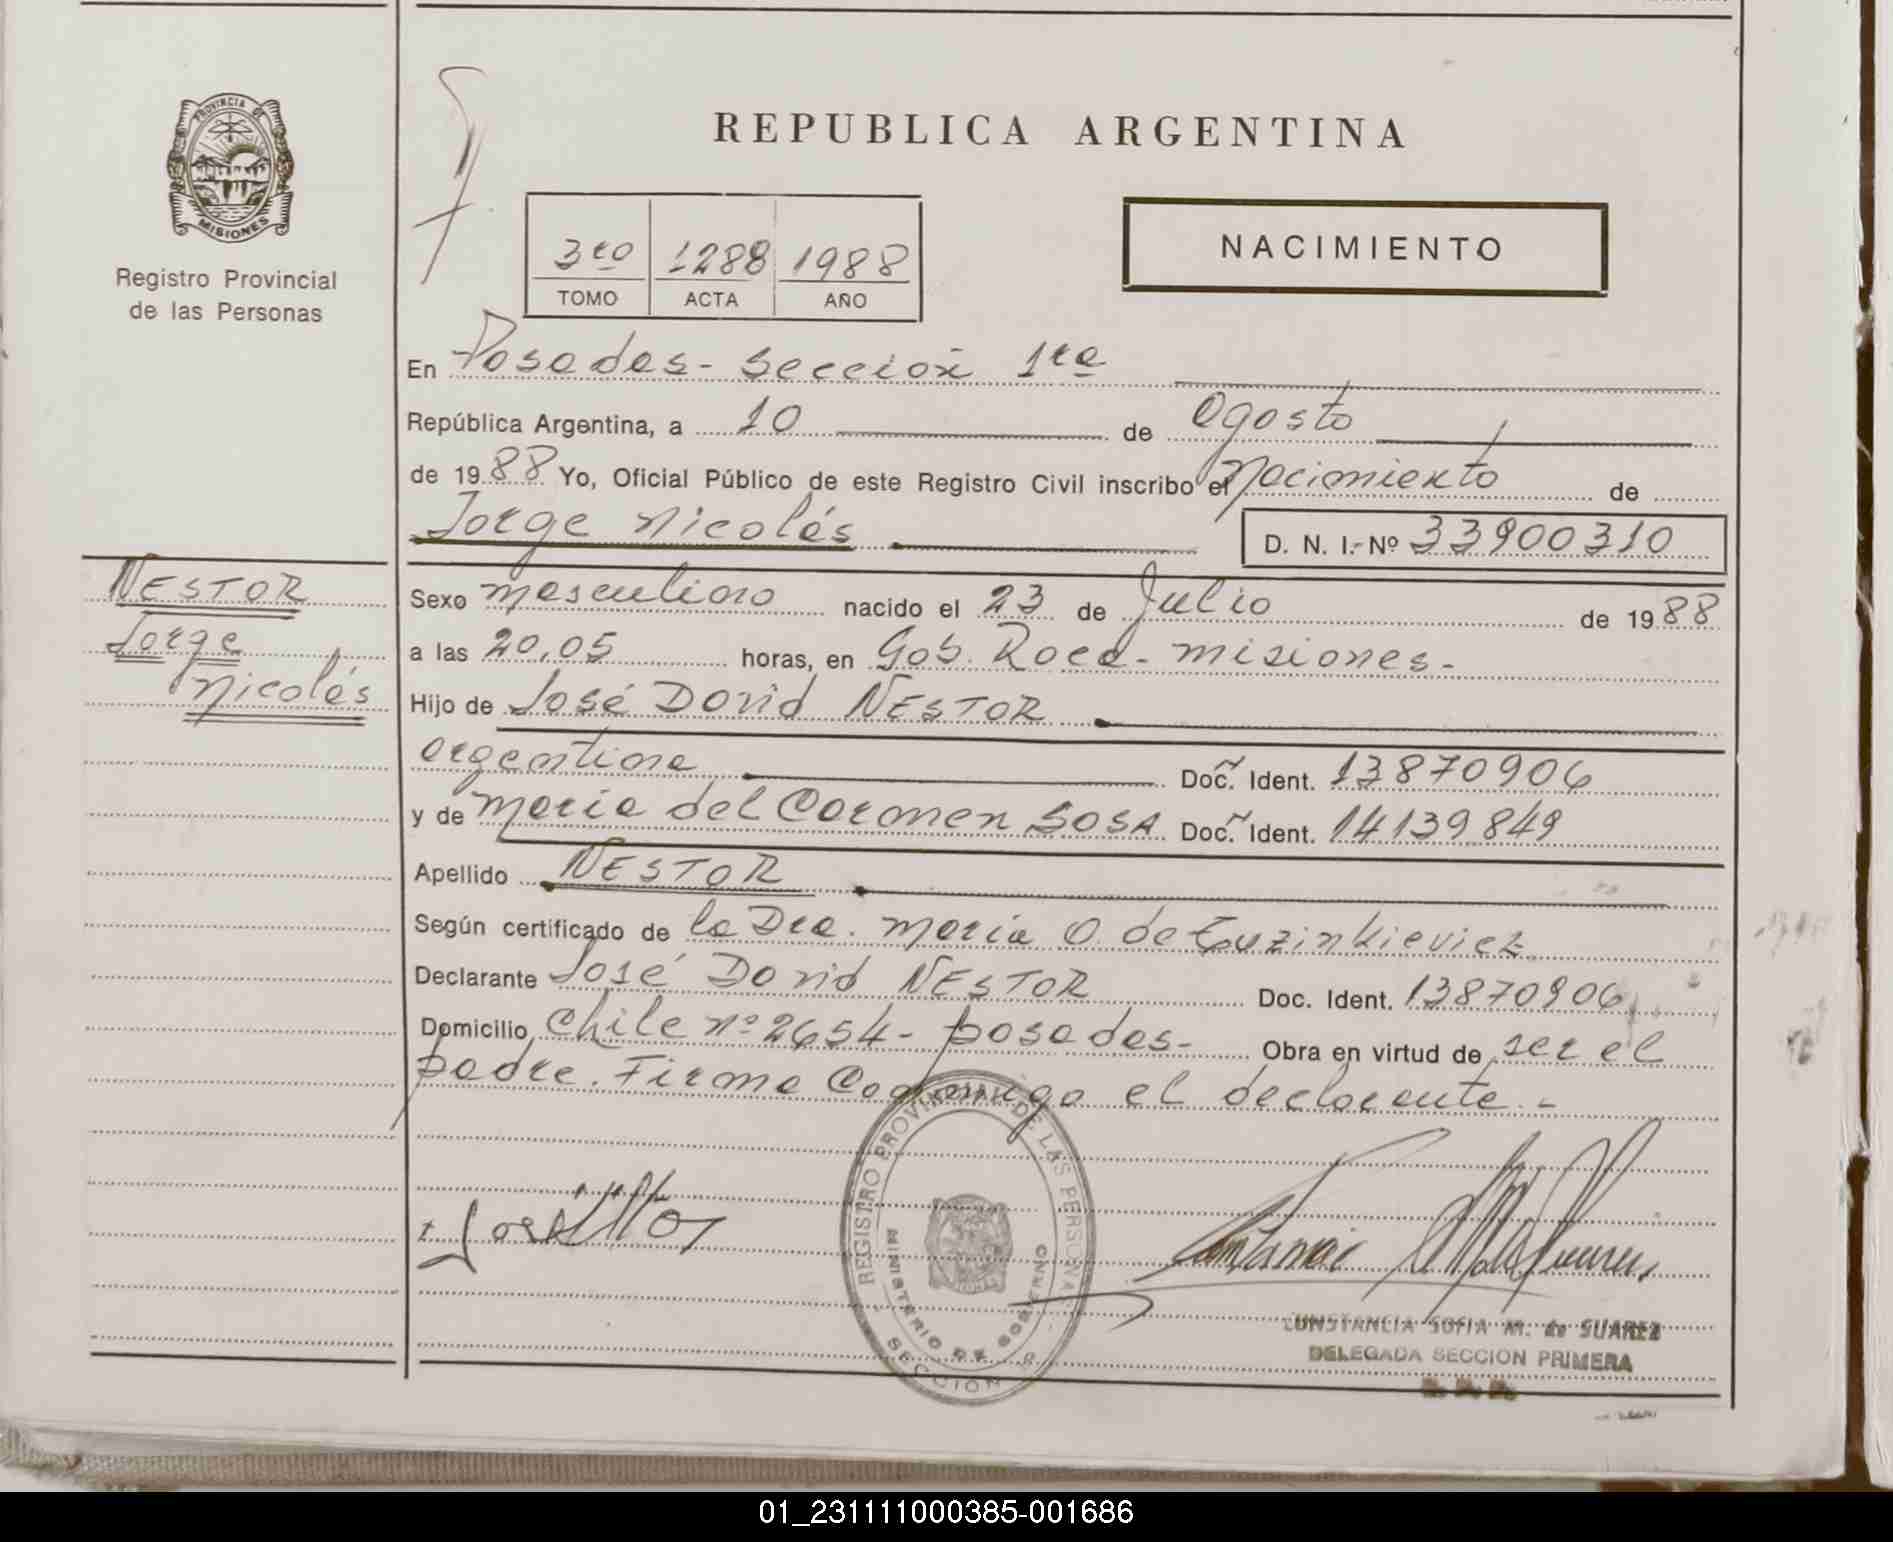 PROVINCIA DE
MISIONES
Registro Provincial
de las Personas
NESTOR
Jorge
Nicolás
REPUBLICA ARGENTINA
3ro 1288 1988
TOMO ACTA AÑO
NACIMIENTO
En Posadas - Sección 1ra
República Argentina, a 10 de Agosto
de 1988 Yo, Oficial Público de este Registro Civil inscribo el Nacimiento de
Jorge Nicolás D. N. I.-Nº 33900310
Sexo masculino nacido el 23 de Julio de 1988
a las 20,05 horas, en Gob. Roca - Misiones -
Hijo de José David NESTOR
argentina Doc. Ident. 13870906
y de María del Carmen SOSA Doc. Ident. 14139849
Apellido NESTOR
Según certificado de la Dra. María O. de
Declarante José David NESTOR Doc. Ident. 13870906
Domicilio Chile nº 2654 - posadas - Obra en virtud de ser el
padre. Firma Conmigo el declarante. -
REGISTRO PROVINCIAL DE LAS PERSONAS
MINISTERIO DE GOBIERNO
SECCION
CONSTANCIA SOFIA M. de SUAREZ
DELEGADA SECCION PRIMERA
01_231111000385-001686